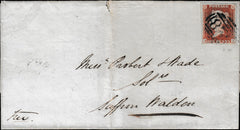 Mess^rs Probert & Wade
Sol^rs
Saffron Walden